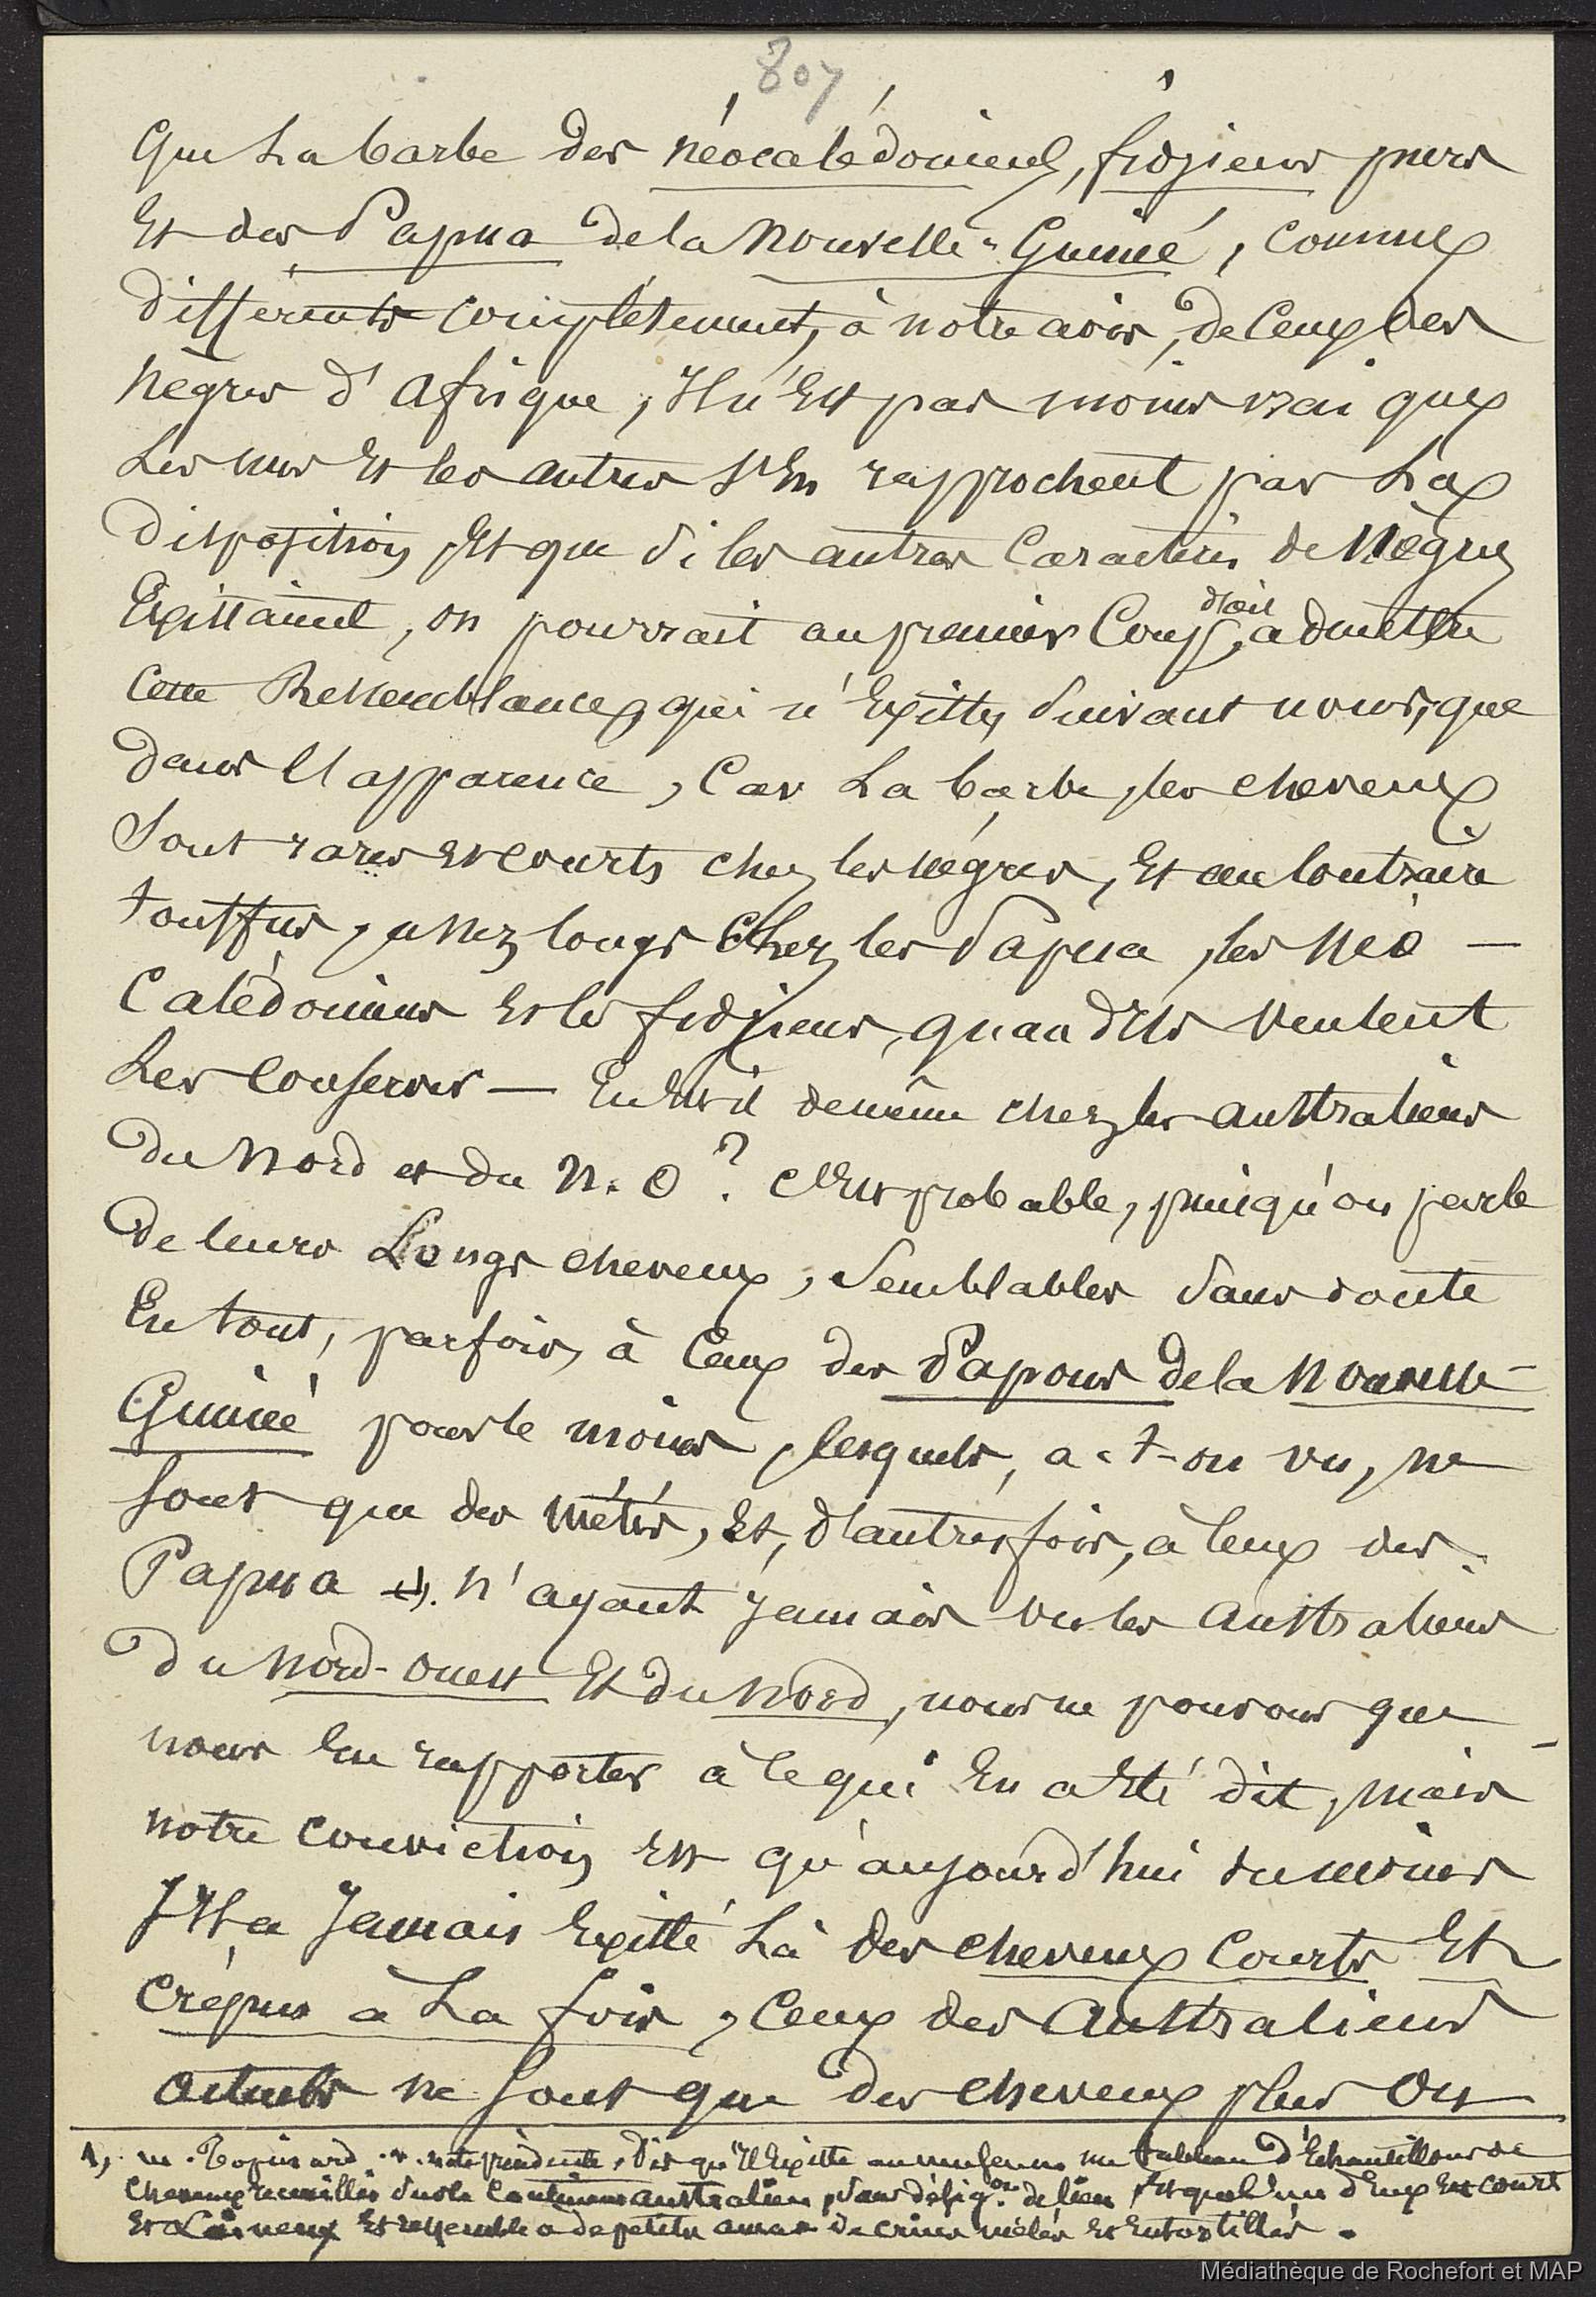 807
que la barbe des néocalédoniens, fidjiens purs
et des Papua de la Nouvelle-Guinée, comme
différents complètement, à notre avis, de ceux des
nègres d'afrique, Il n'est pas moins vrai que
les uns et les autres s'en rapprochent par la
disposition, et que si les autres caractères de nègres
existaient, on pourrait au premier coup d'œil, admettre
cette Ressemblance, qui n'existe, suivant nous, que
dans l'apparence, car la barbe, les cheveux
sont rares et courts chez les nègres, et au contraire
touffus, assez longs chez les Papua, les Néo-
Calédoniens et les fidjiens, quand ils veulent
les conserver — En est-il de même chez les australiens
du Nord et du N. O? C'est probable, puisqu'on parle
de leurs Longs cheveux, semblables sans doute
en tout, parfois, à ceux des Papous de la Nouvelle-
Guinée pour le moins, lesquels, a-t-on vu, ne
sont que des métis, et, d'autres fois, à ceux des
Papua (1). N'ayant jamais vu les australiens
du Nord-Ouest et du Nord, nous ne pouvons que
nous en rapporter à ce qui en a été dit, mais
notre conviction est qu'aujourd'hui du moins
Il a Jamais existé là des cheveux courts et
crépus à la fois, ceux des Australiens
actuels ne sont que des cheveux plus ou
1). M. Topinard, note précédente, dit qu'Il existe au museum un tableau d'Echantillons de
cheveux recueillis sur le continent australien, sans désig.on de lieu, et que l'un d'eux est court
et Laineux et ressemble à de petits amas de crins mêlés et entortillés.
Médiathèque de Rochefort et MAP